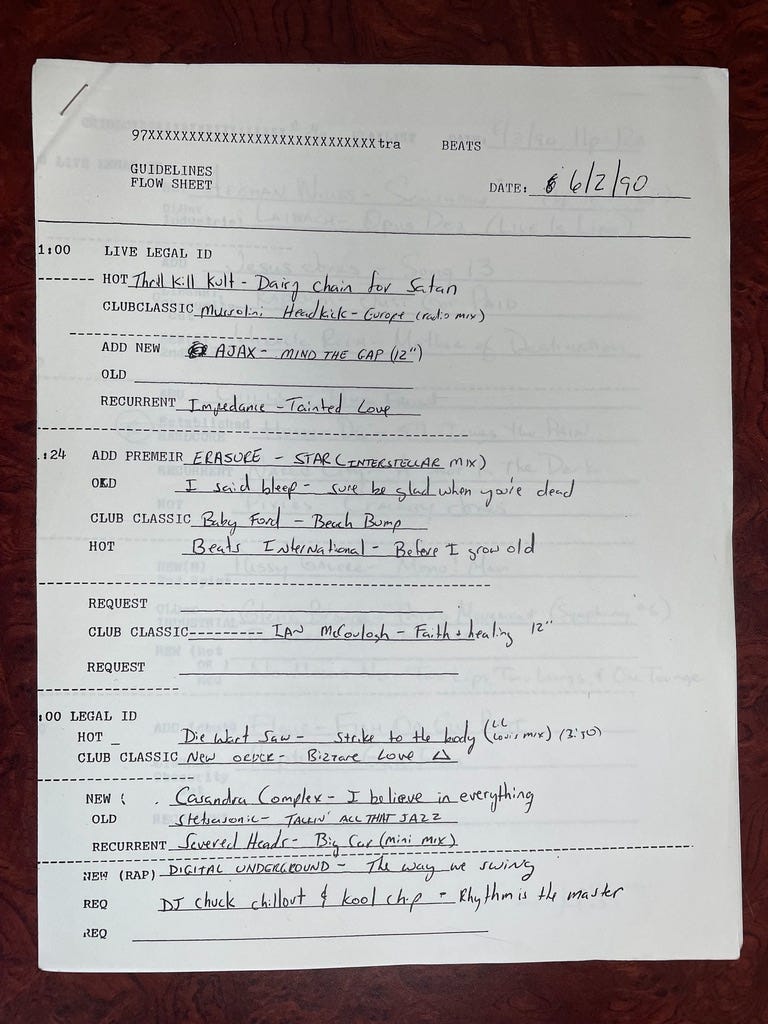 97XXXXXXXXXXXXXXXXXXXXXXXXXXXXtra BEATS
GUIDELINES
FLOW SHEET
DATE: 6/2/90
1:00 LIVE LEGAL ID
HOT Thrill Kill Kult - Dairy chain for Satan
CLUBCLASSIC Mussolini Headkick - Europe (radio mix)
ADD NEW AJAX - MIND THE GAP (12")
OLD
RECURRENT Impedance - Tainted Love
:24 ADD PREMEIR ERASURE - STAR (INTERSTELLAR MIX)
OLD I said bleep - sure be glad when you're dead
CLUB CLASSIC Baby Ford - Beach Bump
HOT Beats International - Before I grow old
REQUEST
CLUB CLASSIC--------- IAN McCoulogh - Faith + healing 12"
REQUEST
:00 LEGAL ID
HOT Die Wart Saw - strike to the body (Lil Louis mix) (3:50)
CLUB CLASSIC New order - Bizzare Love △
NEW ( . Casandra Complex - I believe in everything
OLD Stetsasonic - TALKIN' ALL THAT JAZZ
RECURRENT Severed Heads - Big Car (mini mix)
NEW (RAP) DIGITAL UNDERGROUND - The way we swing
REQ DJ chuck chillout & kool chip - Rhythm is the master
REQ